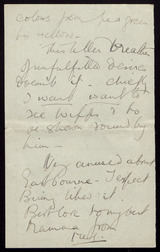 colours from pea green
to yellow.
This letter breathes
of unfulfilled desires
doesn't it - chiefly
I want want to
see & to
be shown round by
him -
Very amused about
Eastbourne - I expect
likes it.
Best love to my best
Mamma from